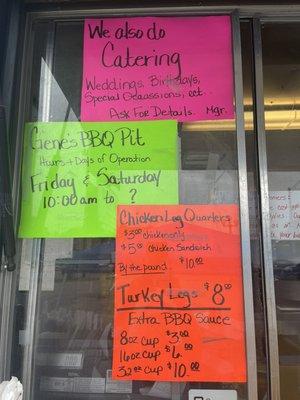 We also do
Catering
Weddings, Birthdays,
Special Ocassions, ect.
Ask For Details. Mgr.
Gene's BBQ Pit
Hours + Days of Operation
Friday & Saturday
10:00 am to ?
Chicken Leg Quarters
$3.00 chicken only
$5.00 Chicken Sandwich
By the pound $10.00
Turkey Legs $8.00
Extra BBQ Sauce
8oz cup $3.00
16oz cup $6.00
32oz cup $10.00